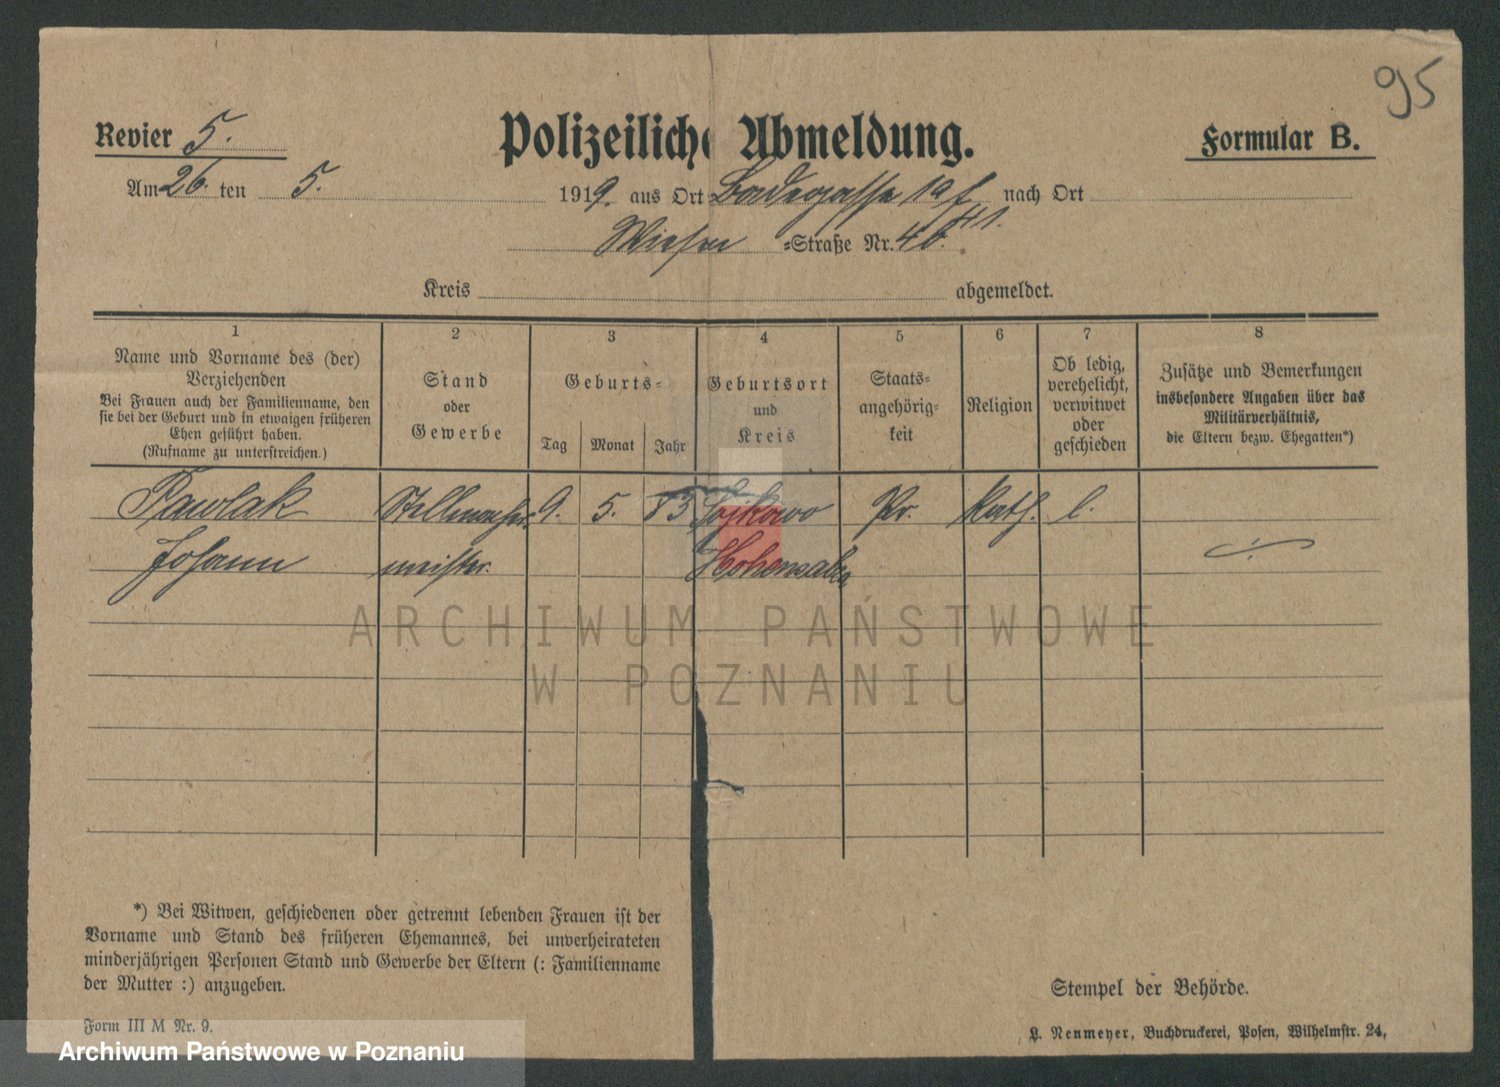 95
Revier 5. Polizeiliche Abmeldung. Formular B.
Am 26. ten 5. 1919. aus Ort Badegasse 12 nach Ort
Wiesen =Straße Nr. 46. 41.
Kreis abgemeldet.
1 2 3 4 5 6 7 8
Name und Vorname des (der) Verziehenden
Bei Frauen auch der Familienname, den
sie bei der Geburt und in etwaigen früheren
Ehen geführt haben.
(Rufname zu unterstreichen.)
Stand
oder
Gewerbe
Geburts=
Tag Monat Jahr
Geburtsort
und
Kreis
Staats=
angehörig=
keit
Religion
Ob ledig,
verehelicht,
verwitwet
oder
geschieden
Zusätze und Bemerkungen
insbesondere Angaben über das
Militärverhältnis,
die Eltern bezw. Ehegatten*)
Pawlak Stellmacher 9. 5. 83 Pr. Kath. l.
Johann meister. Hohensalza
ARCHIWUM PAŃSTWOWE
W POZNANIU
*) Bei Witwen, geschiedenen oder getrennt lebenden Frauen ist der
Vorname und Stand des früheren Ehemannes, bei unverheirateten
minderjährigen Personen Stand und Gewerbe der Eltern (: Familienname
der Mutter :) anzugeben.
Stempel der Behörde.
Form III M Nr. 9.
L. Nenmeyer, Buchdruckerei, Posen, Wilhelmstr. 24,
Archiwum Państwowe w Poznaniu